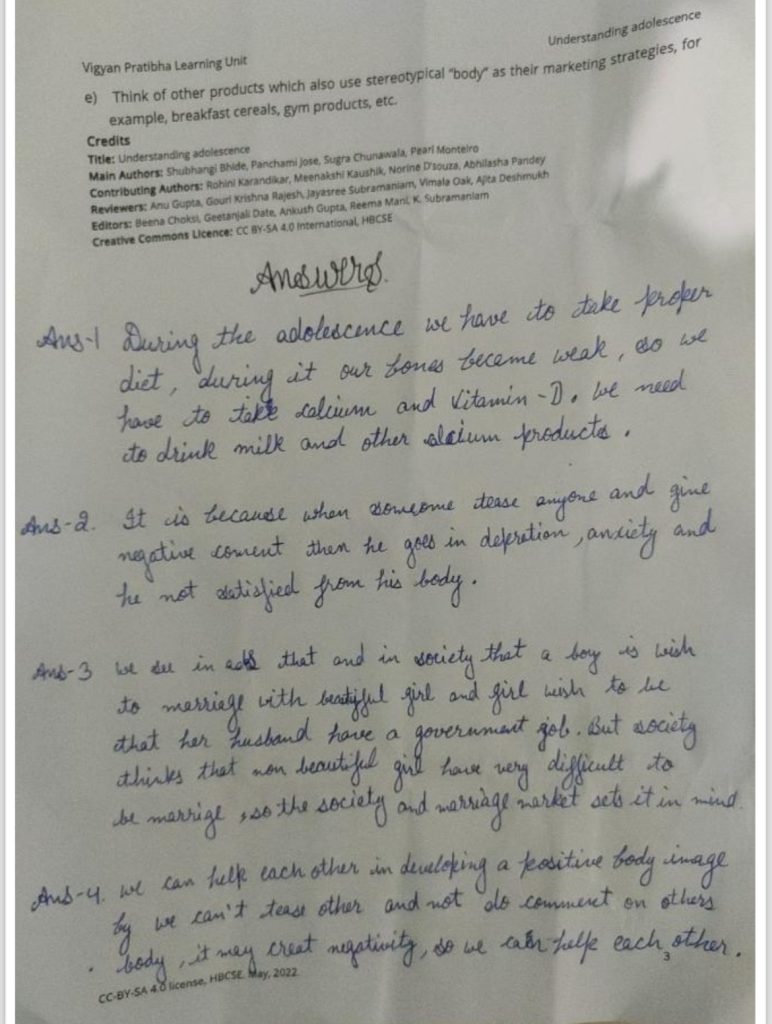 Understanding adolescence
Vigyan Pratibha Learning Unit
e) Think of other products which also use stereotypical "body" as their marketing strategies, for
example, breakfast cereals, gym products, etc.
Credits
Title: Understanding adolescence
Main Authors: Shubhangi Bhide, Panchami Jose, Sugra Chunawala, Pearl Monteiro
Contributing Authors: Rohini Karandikar, Meenakshi Kaushik, Norine D'souza, Abhilasha Pandey
Reviewers: Anu Gupta, Gouri Krishna Rajesh, Jayasree Subramaniam, Vimala Oak, Ajita Deshmukh
Editors: Beena Choksi, Geetanjali Date, Ankush Gupta, Reema Mani, K. Subramaniam
Creative Commons Licence: CC BY-SA 4.0 International, HBCSE
Answers.
Ans-1 During the adolescence we have to take proper
diet, during it our bones became weak, so we
have to take calcium and Vitamin-D. We need
to drink milk and other alcium products.
Ans-2. It is because when someome tease anyone and give
negative coment then he goes in depretion, anxiety and
he not satisfied from his body.
Ans-3 We see in ads that and in society that a boy is wish
to marriage with beatifful girl and girl wish to be
that her husband have a government job. But society
thinks that non beautiful girl have very difficult to
be marrige, so the society and marriage market sets it in mind.
Ans-4. We can help each other in developing a positive body image
by we can't tease other and not do comment on others
body, it may creat negativity, so we can help each other.
3
CC-BY-SA 4.0 license, HBCSE May, 2022